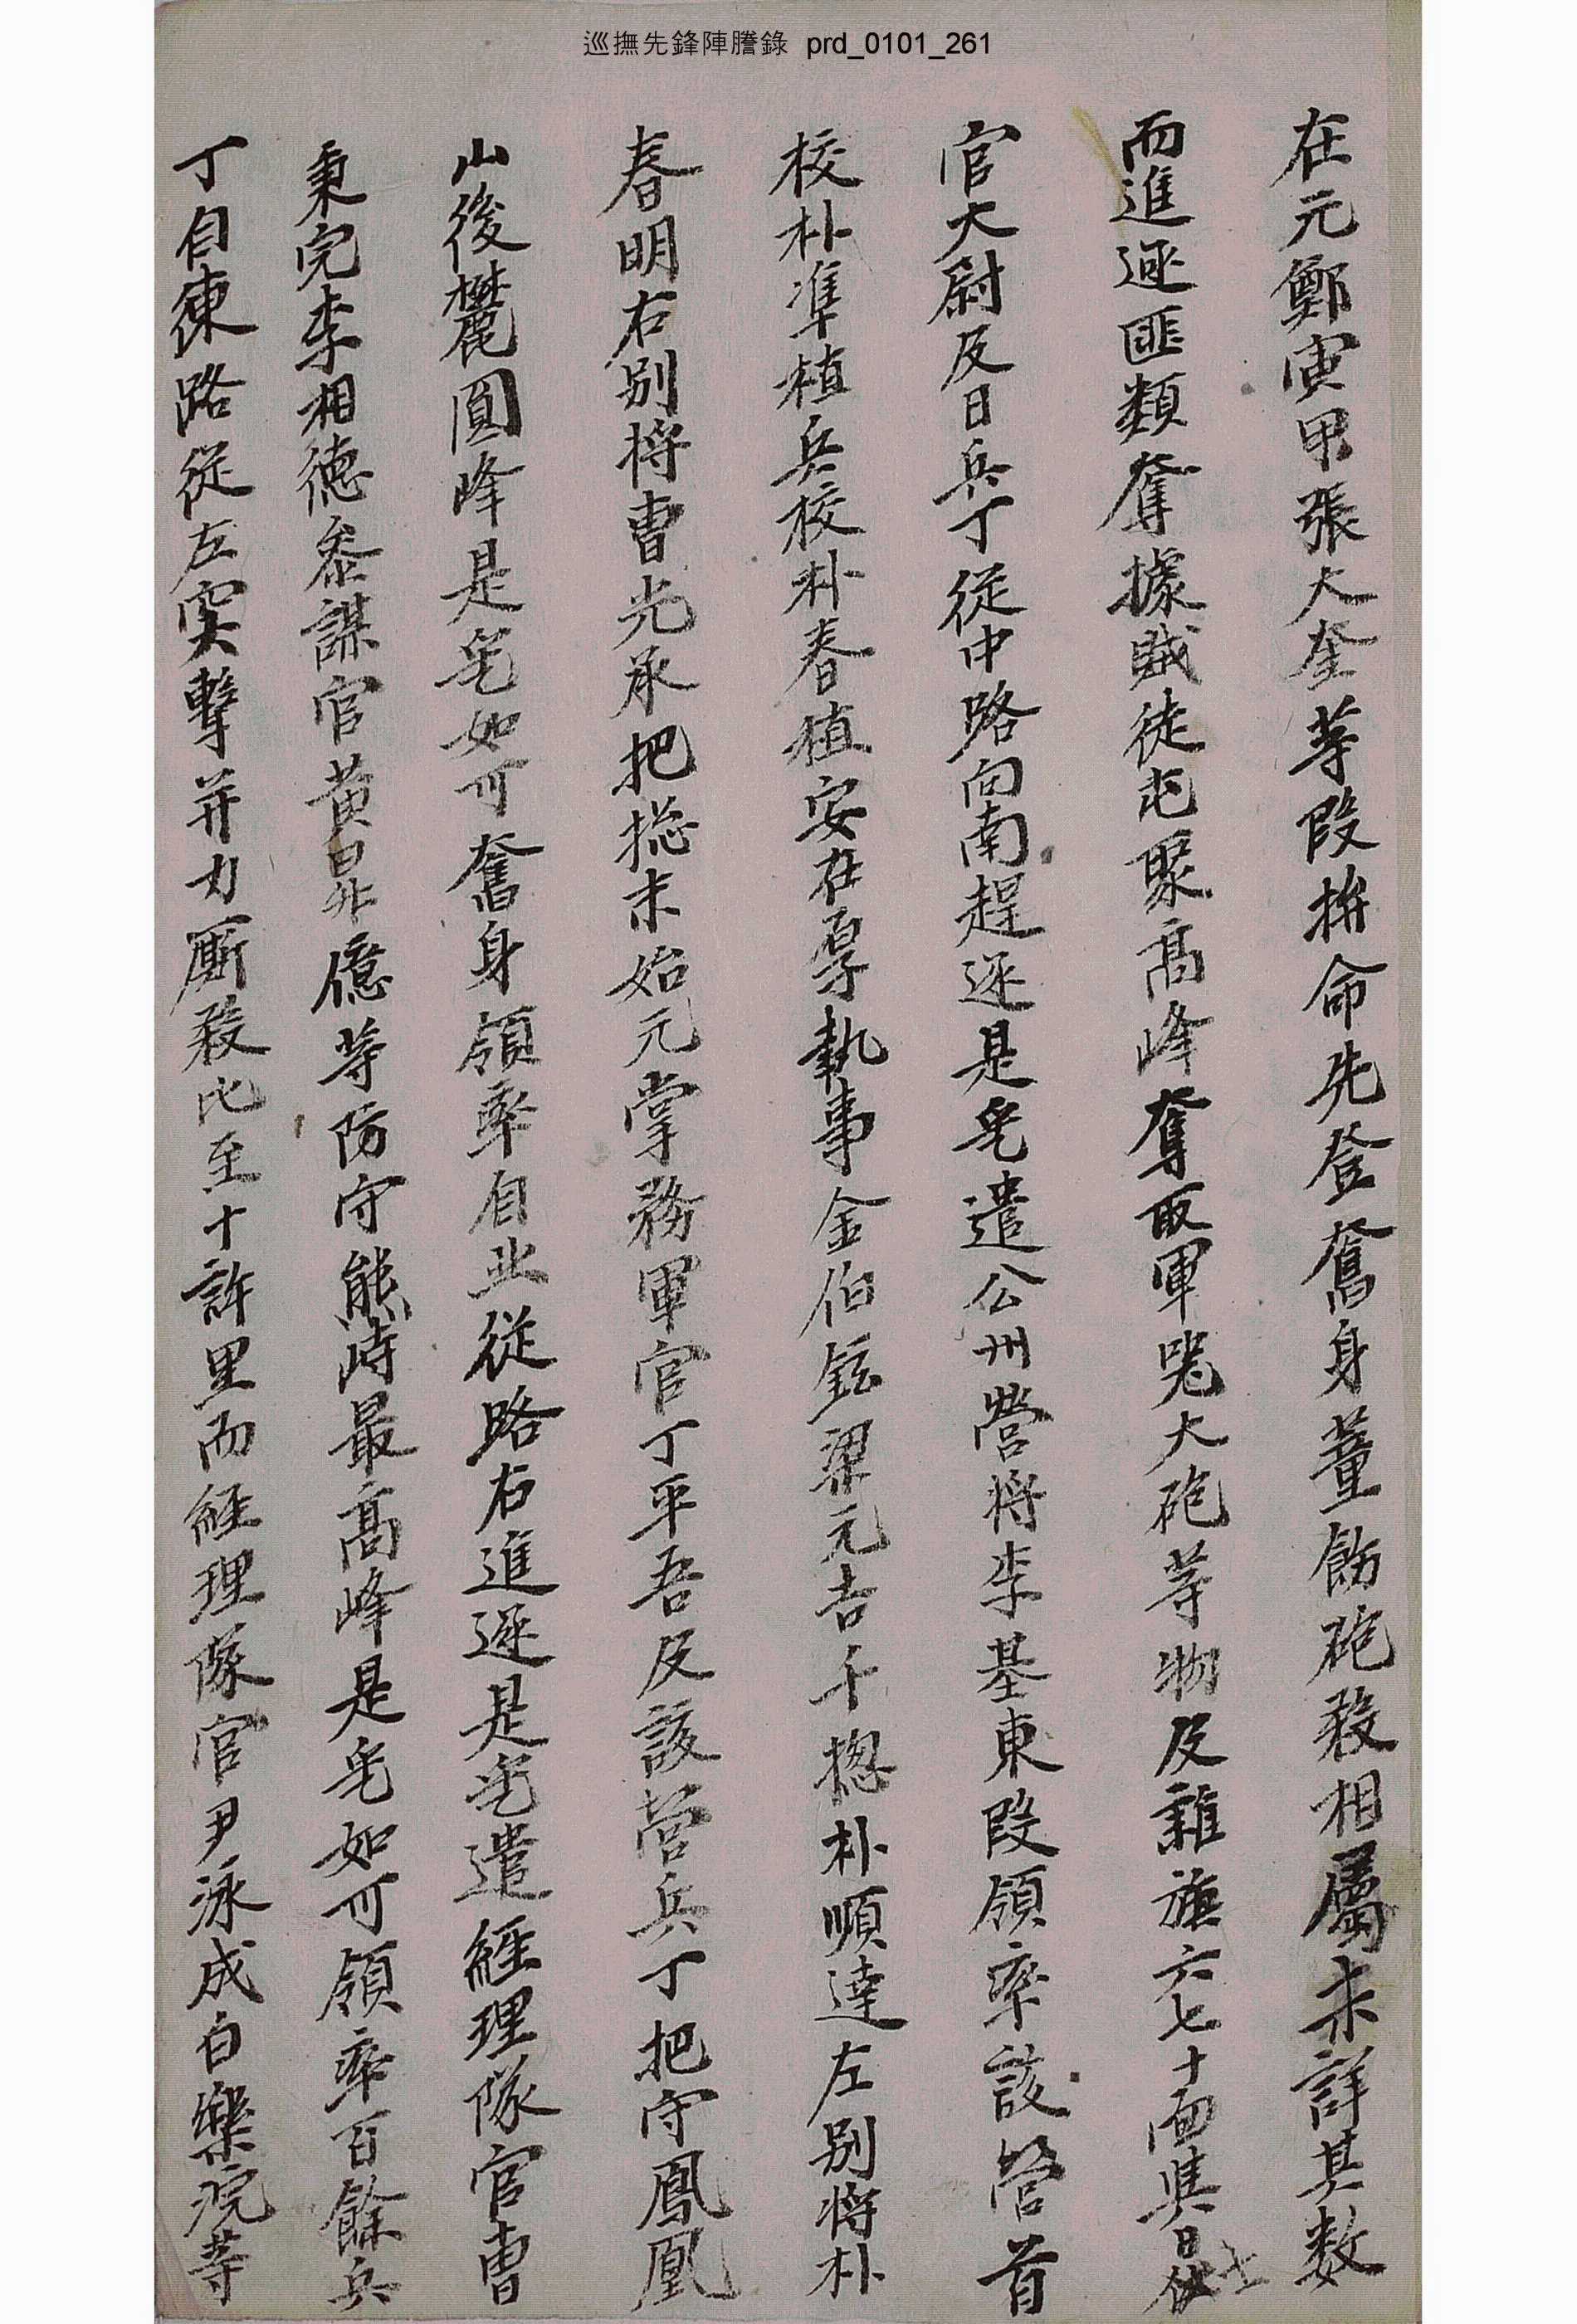 巡撫先鋒陣謄錄 prd_0101_261
在元鄭寅甲張大奎等段拚命先登奮身董飭砲殺相屬未詳其數
而進逐匪類奪據賊徒屯聚高峰奪取軍器大砲等物及雜旗六七十面與日
官大尉及日兵丁從中路向南趕逐是乎遣公州營將李基東段領率該營首
校朴準植兵校朴春植安在厚執事金伯鉉梁元吉千摠朴順達左別將朴
春明右別將曺光承把摠末始元掌務軍官丁平吾及該營兵丁把守鳳凰
山後麓圓峰是乎如可奮身領率自北從路右進逐是乎遣經理隊官曺
秉完李相德參謀官黃昇億等防守熊峙最高峰是乎如可領率百餘兵
丁自東路從左突擊并力廝殺比至十許里而經理隊官尹泳成白樂浣等